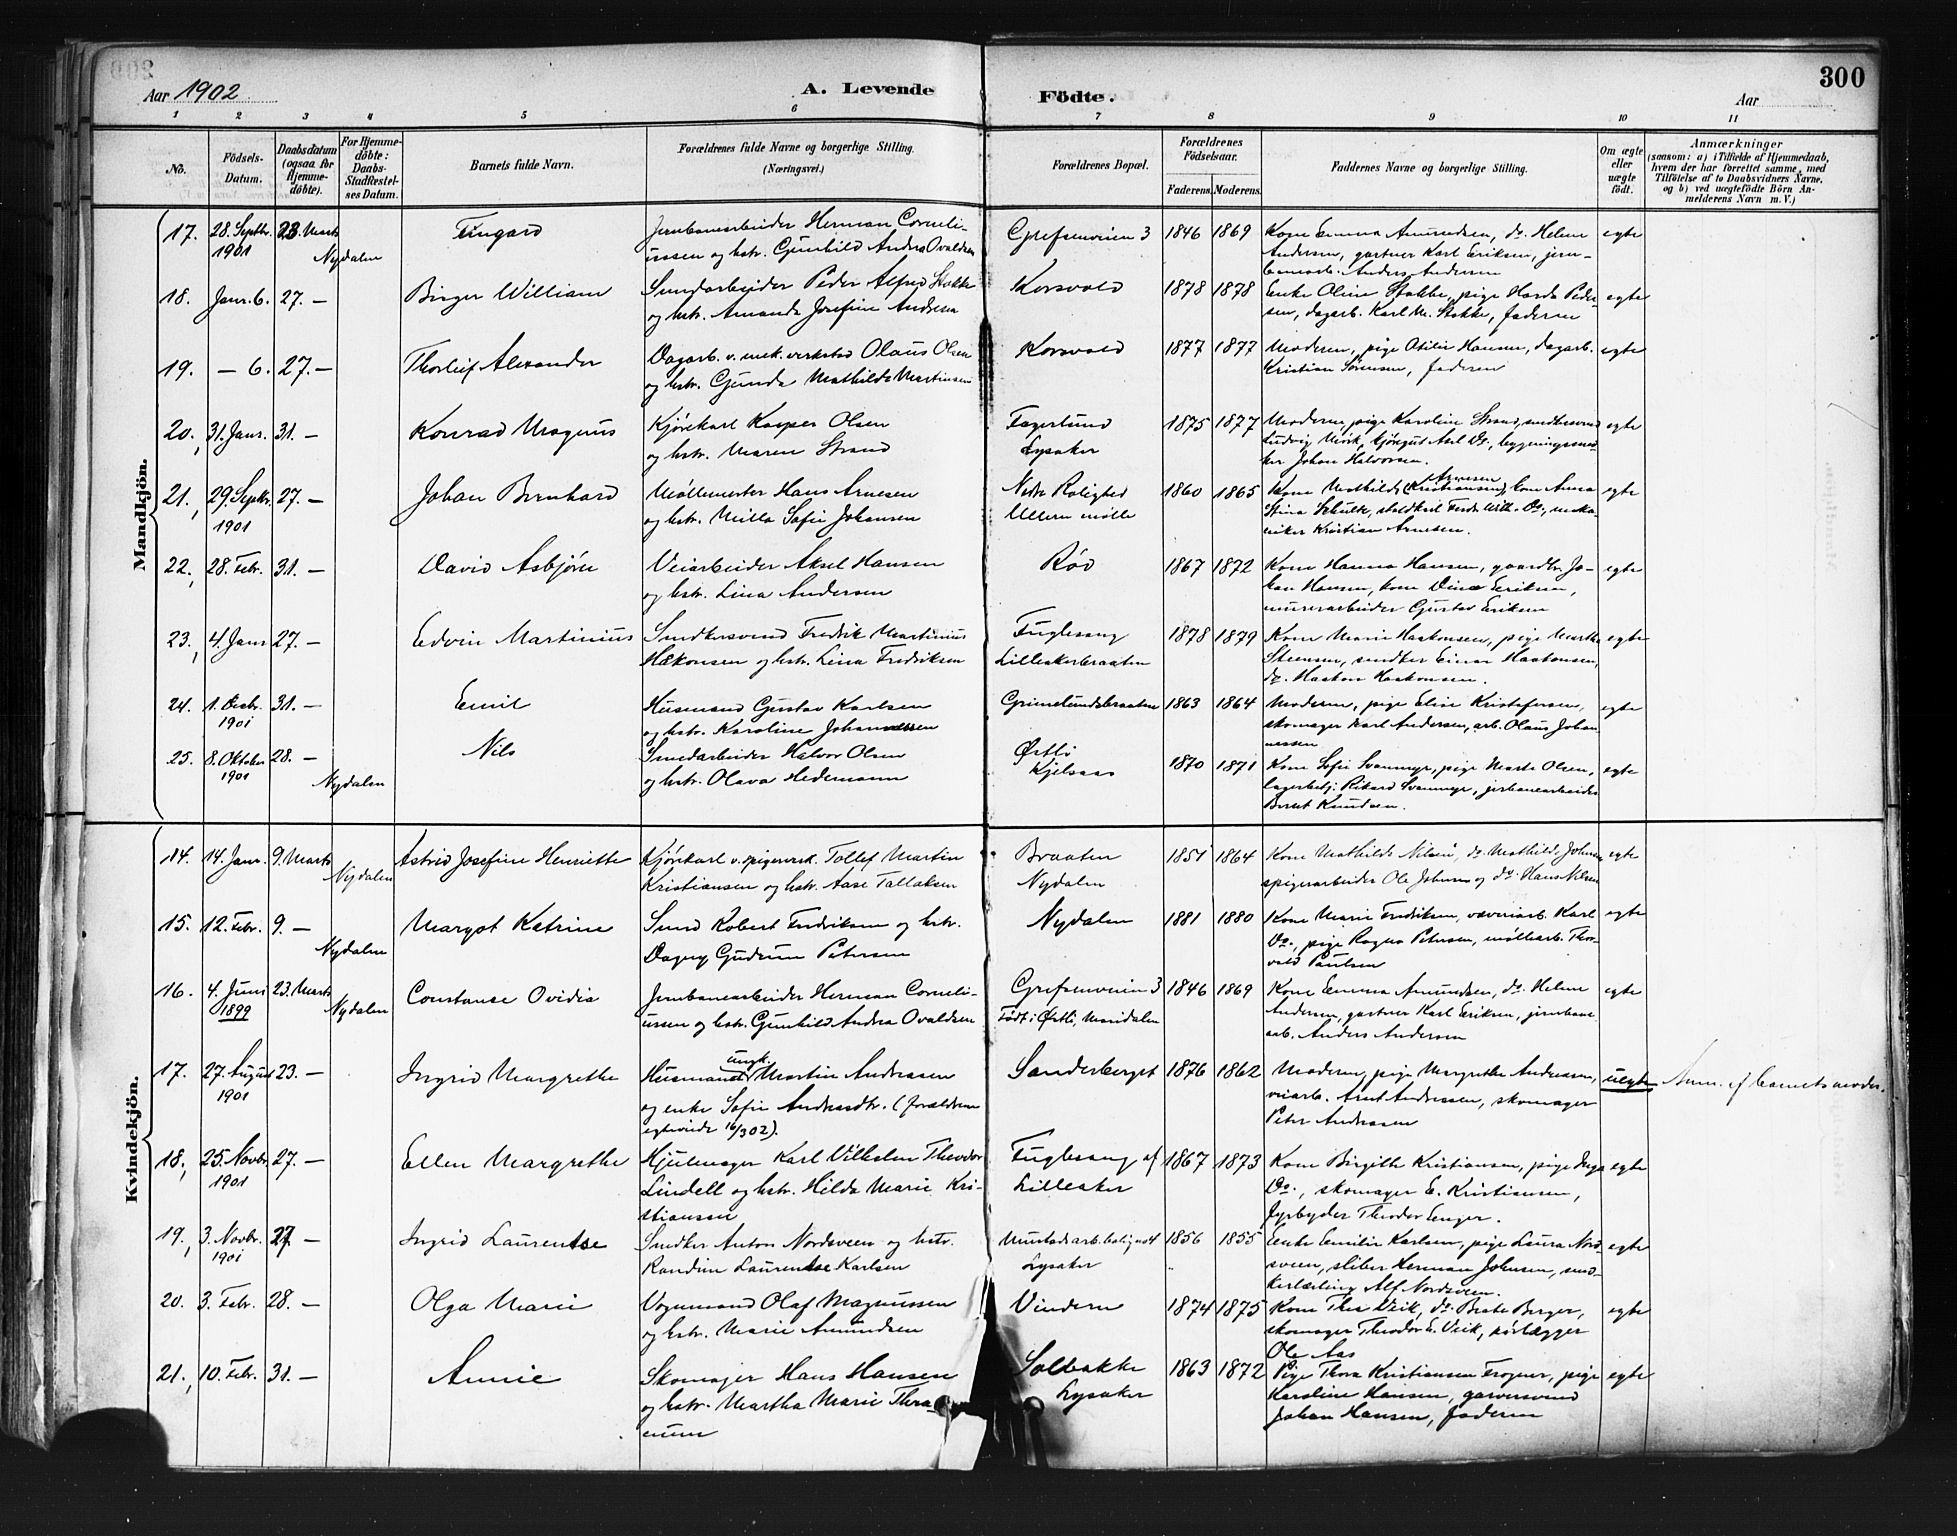 300
Aar 1902
A. Levende
Födte.
Aar
1 2 3 4 5 6 7 8 9 10 11
No.
Födsels-Datum.
Daabsdatum (ogsaa for Hjemmedöbte).
For Hjemmedöbte: Daabs-Stadfestelses Datum.
Barnets fulde Navn.
Forældrenes fulde Navne og borgerlige Stilling. (Næringsvei.)
Forældrenes Bopæl.
Forældrenes Födselsaar.
Faderens. Moderens.
Faddernes Navne og borgerlige Stilling.
Om ægte eller uægte födt.
Anmærkninger
(saasom: a) i Tilfælde af Hjemmedaab, hvem der har forrettet samme, med Tilföielse af to Daabsvidners Navne, og b) ved uægtefödte Börn Anmelderens Navn m. V.)
Mandkjön.
17. 28. Septbr. 1901 23. Marts Nydalen Fingard
Jernbanearbeider Herman Corneli-
ussen og hstr. Gunhild Andrea Ovaldsen
Grefsenveien 3 1846 1869
Kone Emma Amundsen, do. Helene
Andersen, gartner Karl Eriksen, jern-
banearb. Anders Andersen
egte
18. Janr. 6. 27. — Birger William
Smedarbeider Peder Alfred Stokke
og hstr. Amanda Josefine Andresen
Korsvold 1878 1878
Enke Oline Stokke, pige Harda Peder-
sen, dagarb. Karl M. Stokke, faderen
egte
19. — 6. 27. — Thorleif Alexander
Dagarb. v. mek. verksted Olaus Olsen
og hstr. Gunda Mathilde Martinsen
Korsvold 1877 1877
Moderen, pige Otilie Hansen, dagarb.
Kristian Sørensen, faderen
egte
20. 31. Janr. 31. — Konrad Magnus
Kjørekarl Kasper Olsen
og hstr. Maren Strand
Fagerlund
Lysaker
1875 1877
Moderen, pige Karoline Strand, snedkersvend
Ludvig, kjøregut Axel Do., bygningssned-
ker Johan Halvorsen.
egte
21. 29. Septbr. 1901 27. — Johan Bernhard
Møllemester Hans Arnesen
og hstr. Milla Sofie Johansen
Nedre Rolighed
Ullern mølle
1860 1865
Kone Mathilde Arnesen (Kristiansen), kone Anna
Stina Schultz, staldkarl Ferd. Wilh. Do., meka-
niker Kristian Arnesen.
egte
22. 28. Febr. 31. — David Asbjørn
Veiarbeider Aksel Hansen
og hstr. Lina Andersen
Röd 1867 1872
Kone Hanna Hansen, gaardbr. Jo-
han Hansen, kone Dina Eriksen,
murerarbeider Gustav Eriksen
egte
23. 4. Janr 27. — Edvin Martinius
Snedkersvend Fredrik Martinius
Haakonsen og hstr. Lina Fredriksen
Fuglesang
Lilleakerbraaten
1878 1879
Kone Marie Haakonsen, pige Martha
Steensen, snedker Einar Haakonsen,
do. Haakon Haakonsen.
egte
24. 1. Decbr. 1901 31. — Emil
Husmand Gustav Karlsen
og hstr. Karoline Johannessen
Grimelundsbraaten 1863 1864
Moderen, pige Elise Kristofersen,
skomager Karl Andersen, arb. Olaus Johan-
nessen
egte
25. 8. Oktober 1901 28. — Nydalen Nils
Smedarbeider Halvor Olsen
og hstr. Olava Hedemann
Østli
Kjelsaas
1870 1871
Kone Sofie Svanmyr, pige Marte Olsen,
lagerbetj. Rikard Svanmyr, jernbanearbeider
Beret Knudsen.
egte
Kvindekjön.
14. 14. Janr. 9. Marts Nydalen Astrid Josefine Henriette
Kjørekarl v. spigerverk. Tollef Martin
Kristiansen og hstr. Aase Tallaksen
Braaten
Nydalen
1851 1864
Kone Mathilde Nilsen, do. Mathilde Johnsen
spigerarbeider Ole Johnsen og do. Hans Nilsen
egte
15. 12. Febr. 9. — Nydalen Margot Katrine
Smed Robert Fredriksen og hstr.
Dagny Gudrun Petersen
Nydalen 1881 1880
Kone Marie Fredriksen, væveriarb. Karl
Do., pige Ragna Petersen, møllearb. Thor-
vald Paulsen
egte
16. 4. Juni 1899 23. Marts Nydalen Constance Ovidia
Jernbanearbeider Herman Corneli-
ussen og hstr. Gunhild Andrea Ovaldsen
Grefsenveien 3
Født i Østli, Maridalen
1846 1869
Kone Emma Amundsen, do. Helene
Andersen, gartner Karl Eriksen, jernbane-
arb. Anders Andersen
egte
17. 27. August 1901 23. — Ingrid Margrethe
ungk.
Husmand Martin Andreasen
og enke Sofie Andreasdtr. (forældrene
egteviede 16/3 02).
Sanderberget 1876 1862
Moderen, pige Margrethe Andreasen,
veiarb. Arnt Andreassen, skomager
Peter Andreasen
uegte
Anm. af barnets moder.
18. 25. Novbr. 1901 27. — Ellen Margrethe
Hjulmager Karl Vilhelm Theodor
Lindell og hstr. Hilda Marie Kri-
stiansen
Fuglesang af
Lilleaker
1867 1873
Kone Birgitte Kristiansen, pige Inga
Do., skomager E. Kristiansen,
fyrbøder Theodor Enger.
egte
19. 3. Novbr. 1901 27. — Ingrid Laurentse
Snedker Anton Nordsveen og hstr.
Randine Laurentse Karlsen
Mustads arb. bolig no 4
Lysaker
1856 1855
Enke Emilie Karlsen, pige Laura Nord-
sveen, sliber Herman Johnsen, sned-
kerlærling Alf Nordsveen.
egte
20. 3. Febr. 28. — Olga Marie
Vognmand Olaf Magnussen
og hstr. Marie Amundsen
Vindern 1874 1875
Kone Thea Vik, do. Beate Berger,
skomager Theodor E. Vik, rørlægger
Ole Aas
egte
21. 10. Febr. 31. — Annie
Skomager Hans Hansen
og hstr. Martha Marie Thra-
num
Solbakke
Lysaker
1863 1872
Pige Thora Kristiansen Frogner, pige
Karoline Hansen, garversvend
Johan Hansen, faderen
egte